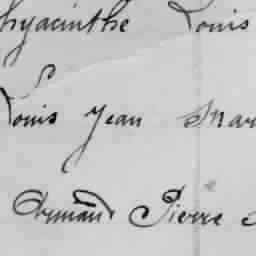 hyacinthe Louis
Louis Jean Mar
Armand Pierre